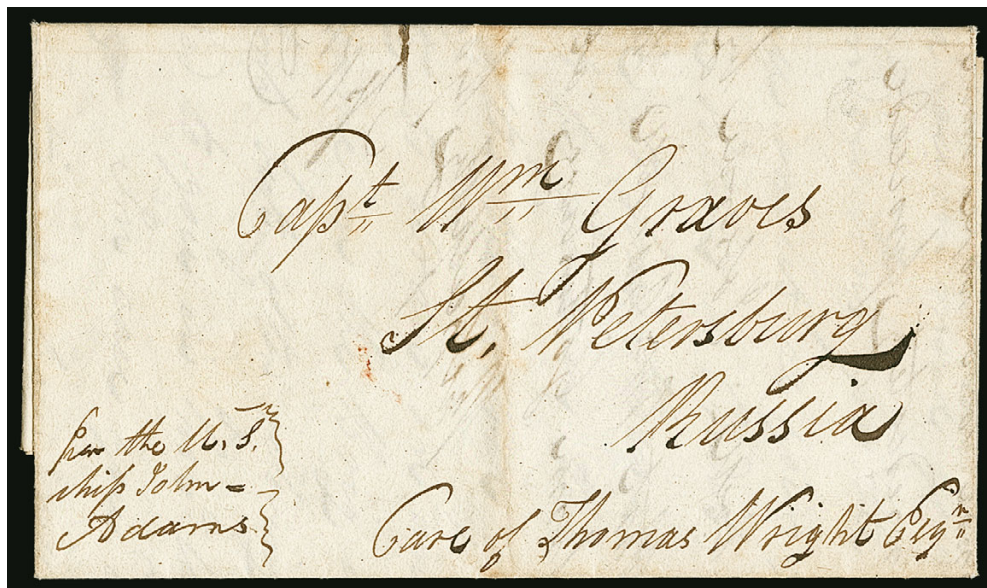 Capt Wm Graves
St, Petersburg
Russia
Care of Thomas Wright Esqr
per the U, S.
ship John =
Adams